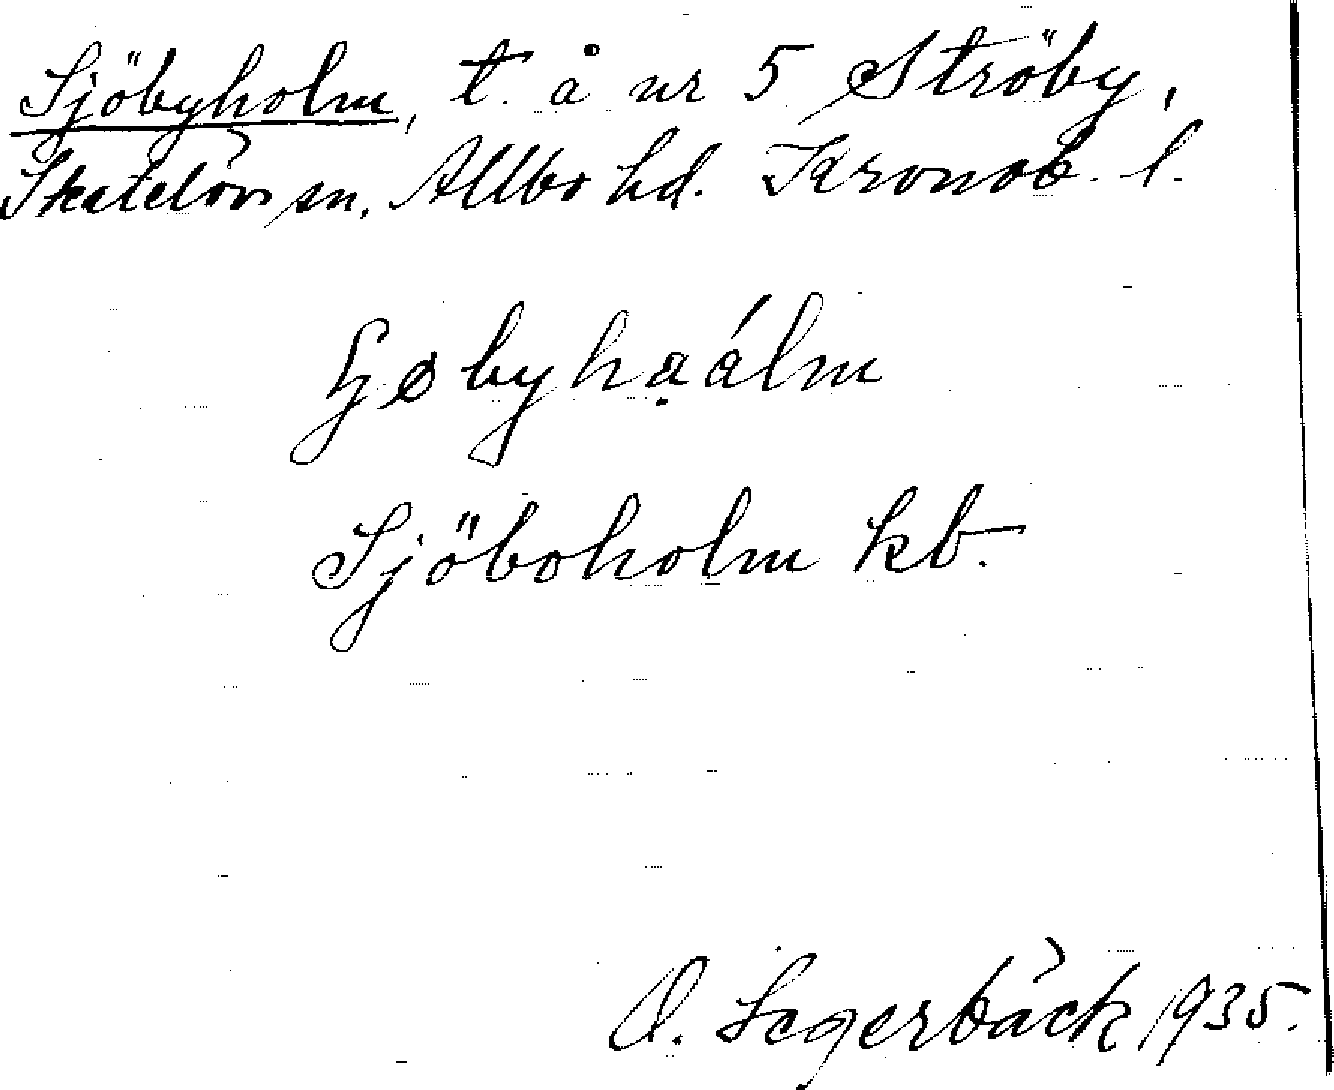 Sjöbyholm, t. å nr 5 Ströby,
Skatelövs sn, Allbo hd. Kronob. l.
byhạálm
Sjöboholm kb.
O. Segerbäck 1935.